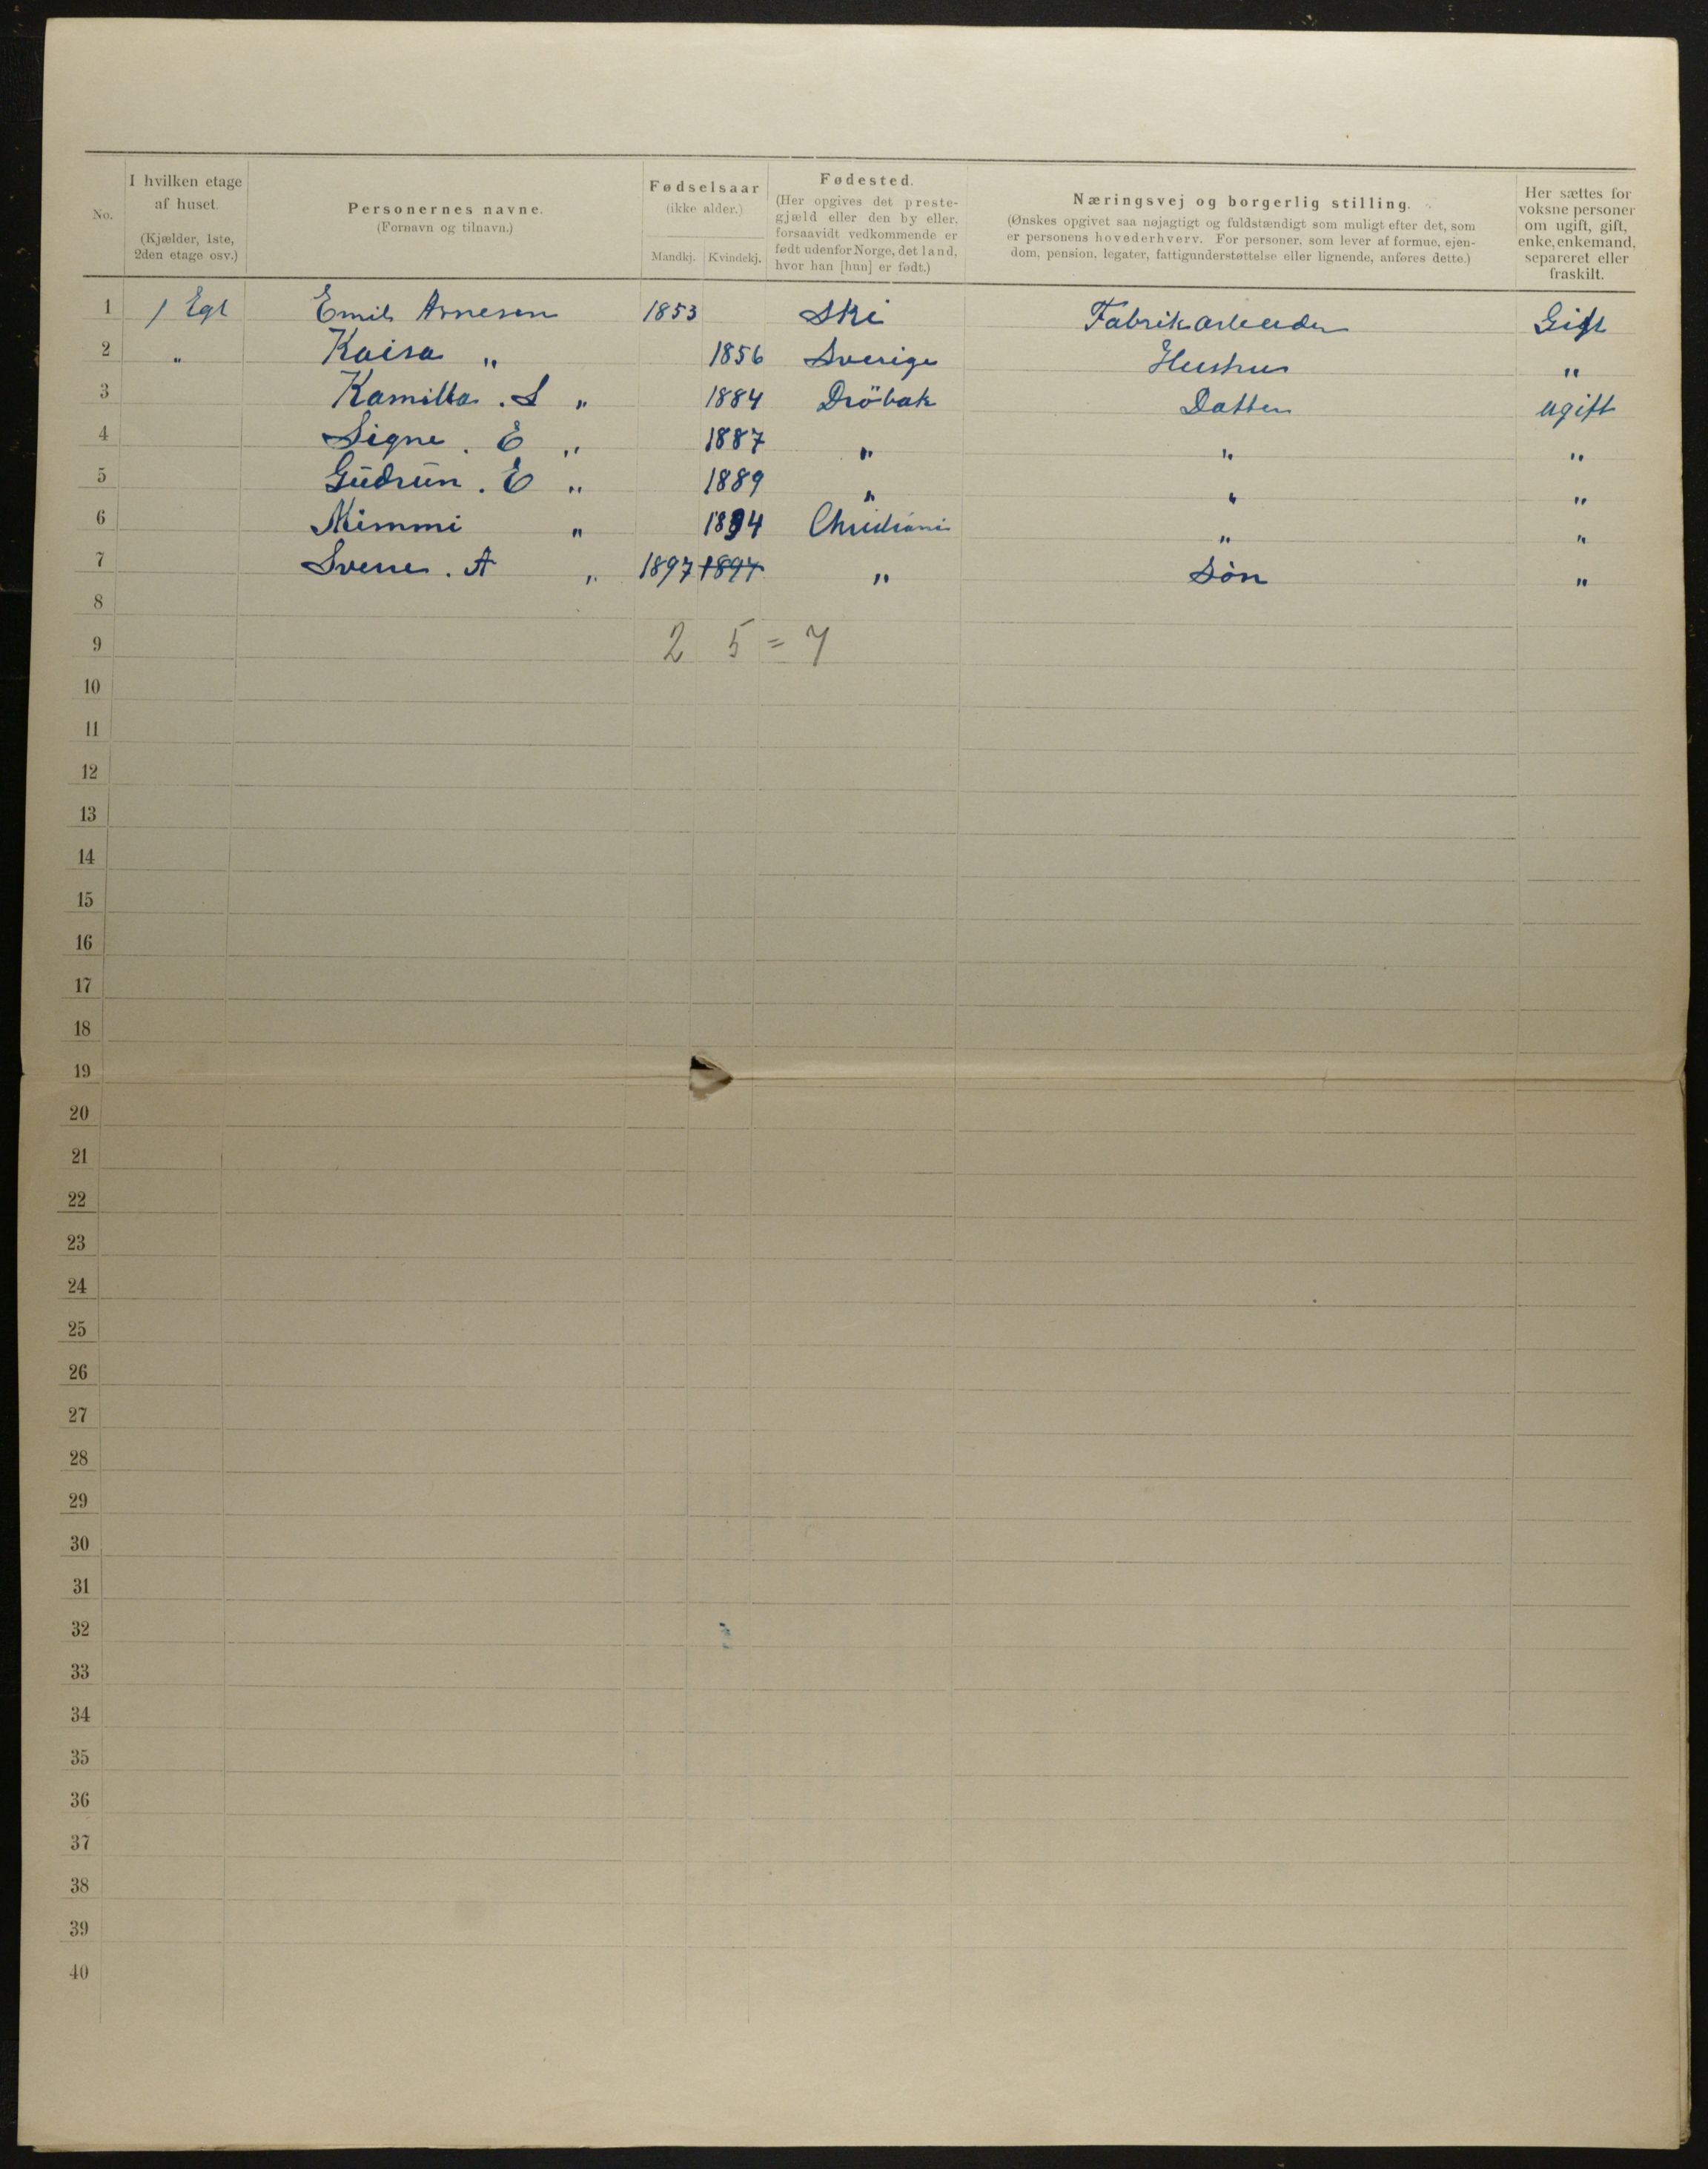 No.
I hvilken etage af huset. (Kjælder, 1ste, 2den etage osv.)
Personernes navne. (Fornavn og tilnavn.)
Fødselsaar (ikke alder.)
Mandkj. Kvindekj.
Fødested. (Her opgives det prestegjæld eller den by eller, forsaavidt vedkommende er født udenfor Norge, det land, hvor han [hun] er født.)
Næringsvej og borgerlig stilling.
(Ønskes opgivet saa nøjagtigt og fuldstændigt som muligt efter det, som
er personens hovederhverv. For personer, som lever af formue, ejen-
dom, pension, legater, fattigunderstøttelse eller lignende, anføres dette.)
Her sættes for voksne personer om ugift, gift, enke, enkemand, separeret eller fraskilt.
1 1 Egt Emil Arnesen 1853 Ski Fabrikarbeider Gift
2 " Kaisa " 1856 Sverige Hustru "
3 Kamilla . S " 1884 Dröbak Datter ugift
4 Signe . E " 1887 " " "
5 Gudrun . E " 1889 " " "
6 Mimmi " 1894 Christiani " "
7 Sverre . A " 1897 1897 " Sön "
8
9 2 5 = 7
10
11
12
13
14
15
16
17
18
19
20
21
22
23
24
25
26
27
28
29
30
31
32
33
34
35
36
37
38
39
40